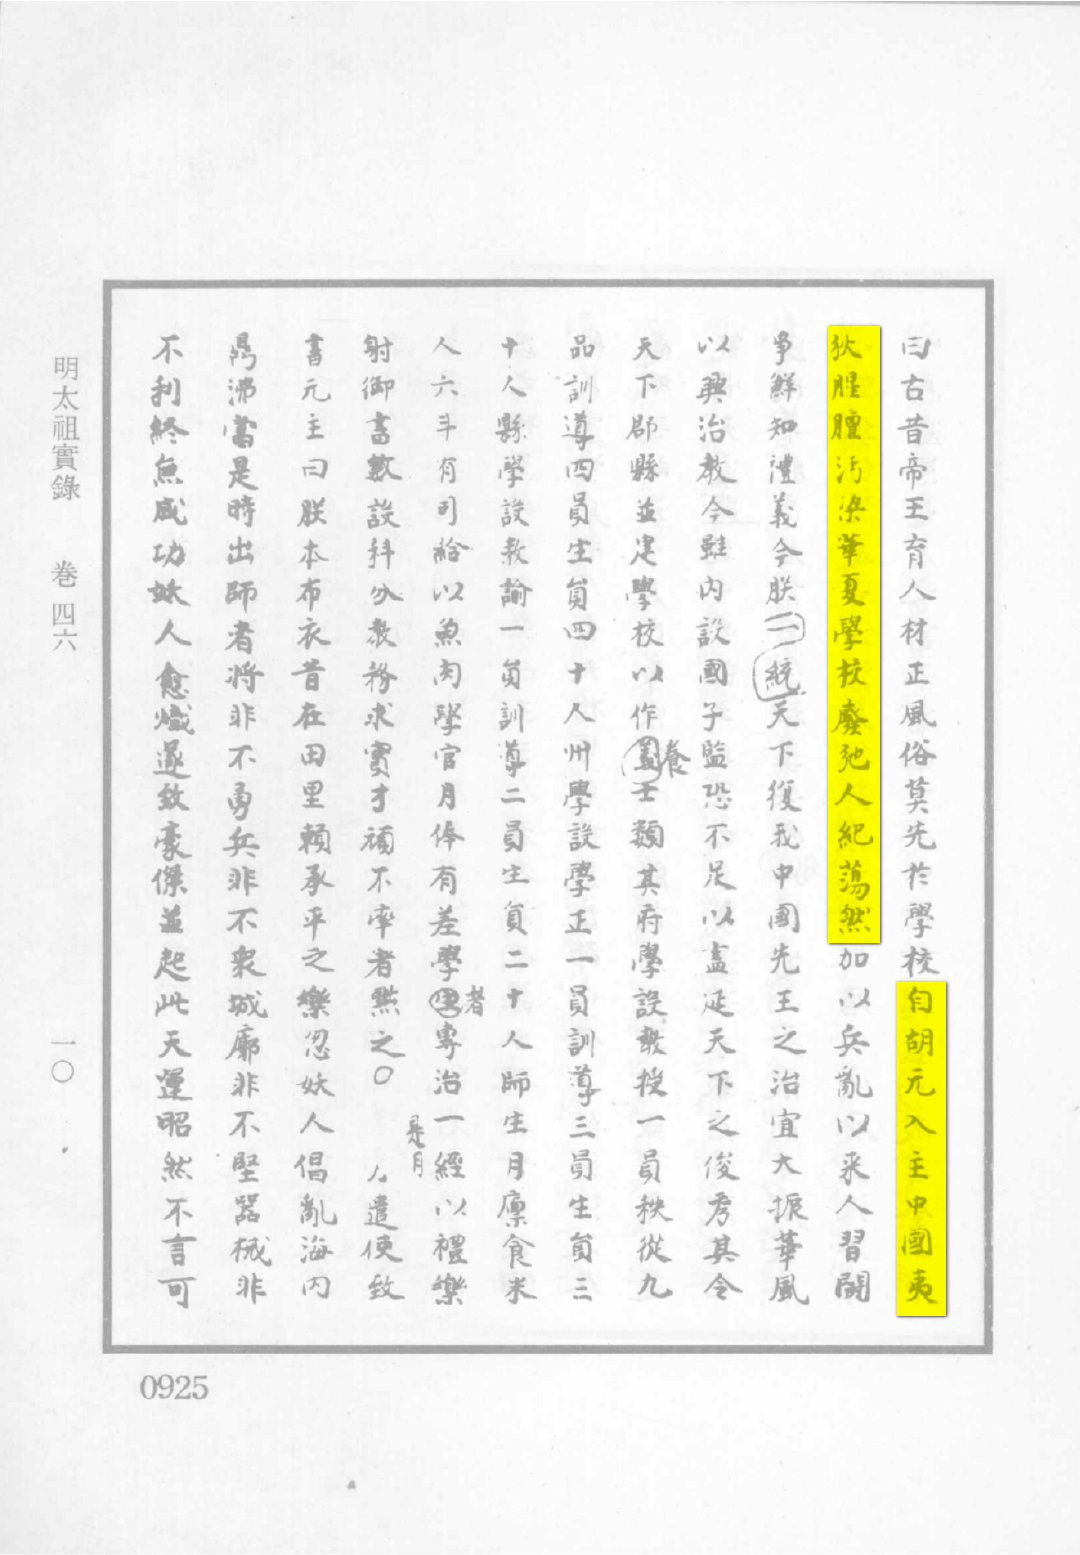 曰古昔帝王育人材正風俗莫先於學校自胡元入主中國夷
狄腥膻汚染華夏學校廢弛人紀蕩然加以兵亂以來人習鬪
爭鮮知禮義今朕一統天下復我中國先王之治宜大振華風
以興治教今雖內設國子監恐不足以盡延天下之俊秀其令
天下郡縣並建學校以作養士類其府學設教授一員秩從九
品訓導四員生員四十人州學設學正一員訓導三員生員三
十人縣學設教諭一員訓導二員生員二十人師生月廩食米
人六斗有司給以魚肉學官月俸有差學者專治一經以禮樂
射御書數設科分教務求實才頑不率者黜之○是月遣使致
書元主曰朕本布衣昔在田里賴承平之樂忽妖人倡亂海內
鼎沸當是時出師者將非不勇兵非不衆城廓非不堅器械非
不利終無成功妖人愈熾遂致豪傑並起此天運昭然不言可
明太祖實錄 卷四六 一○
0925